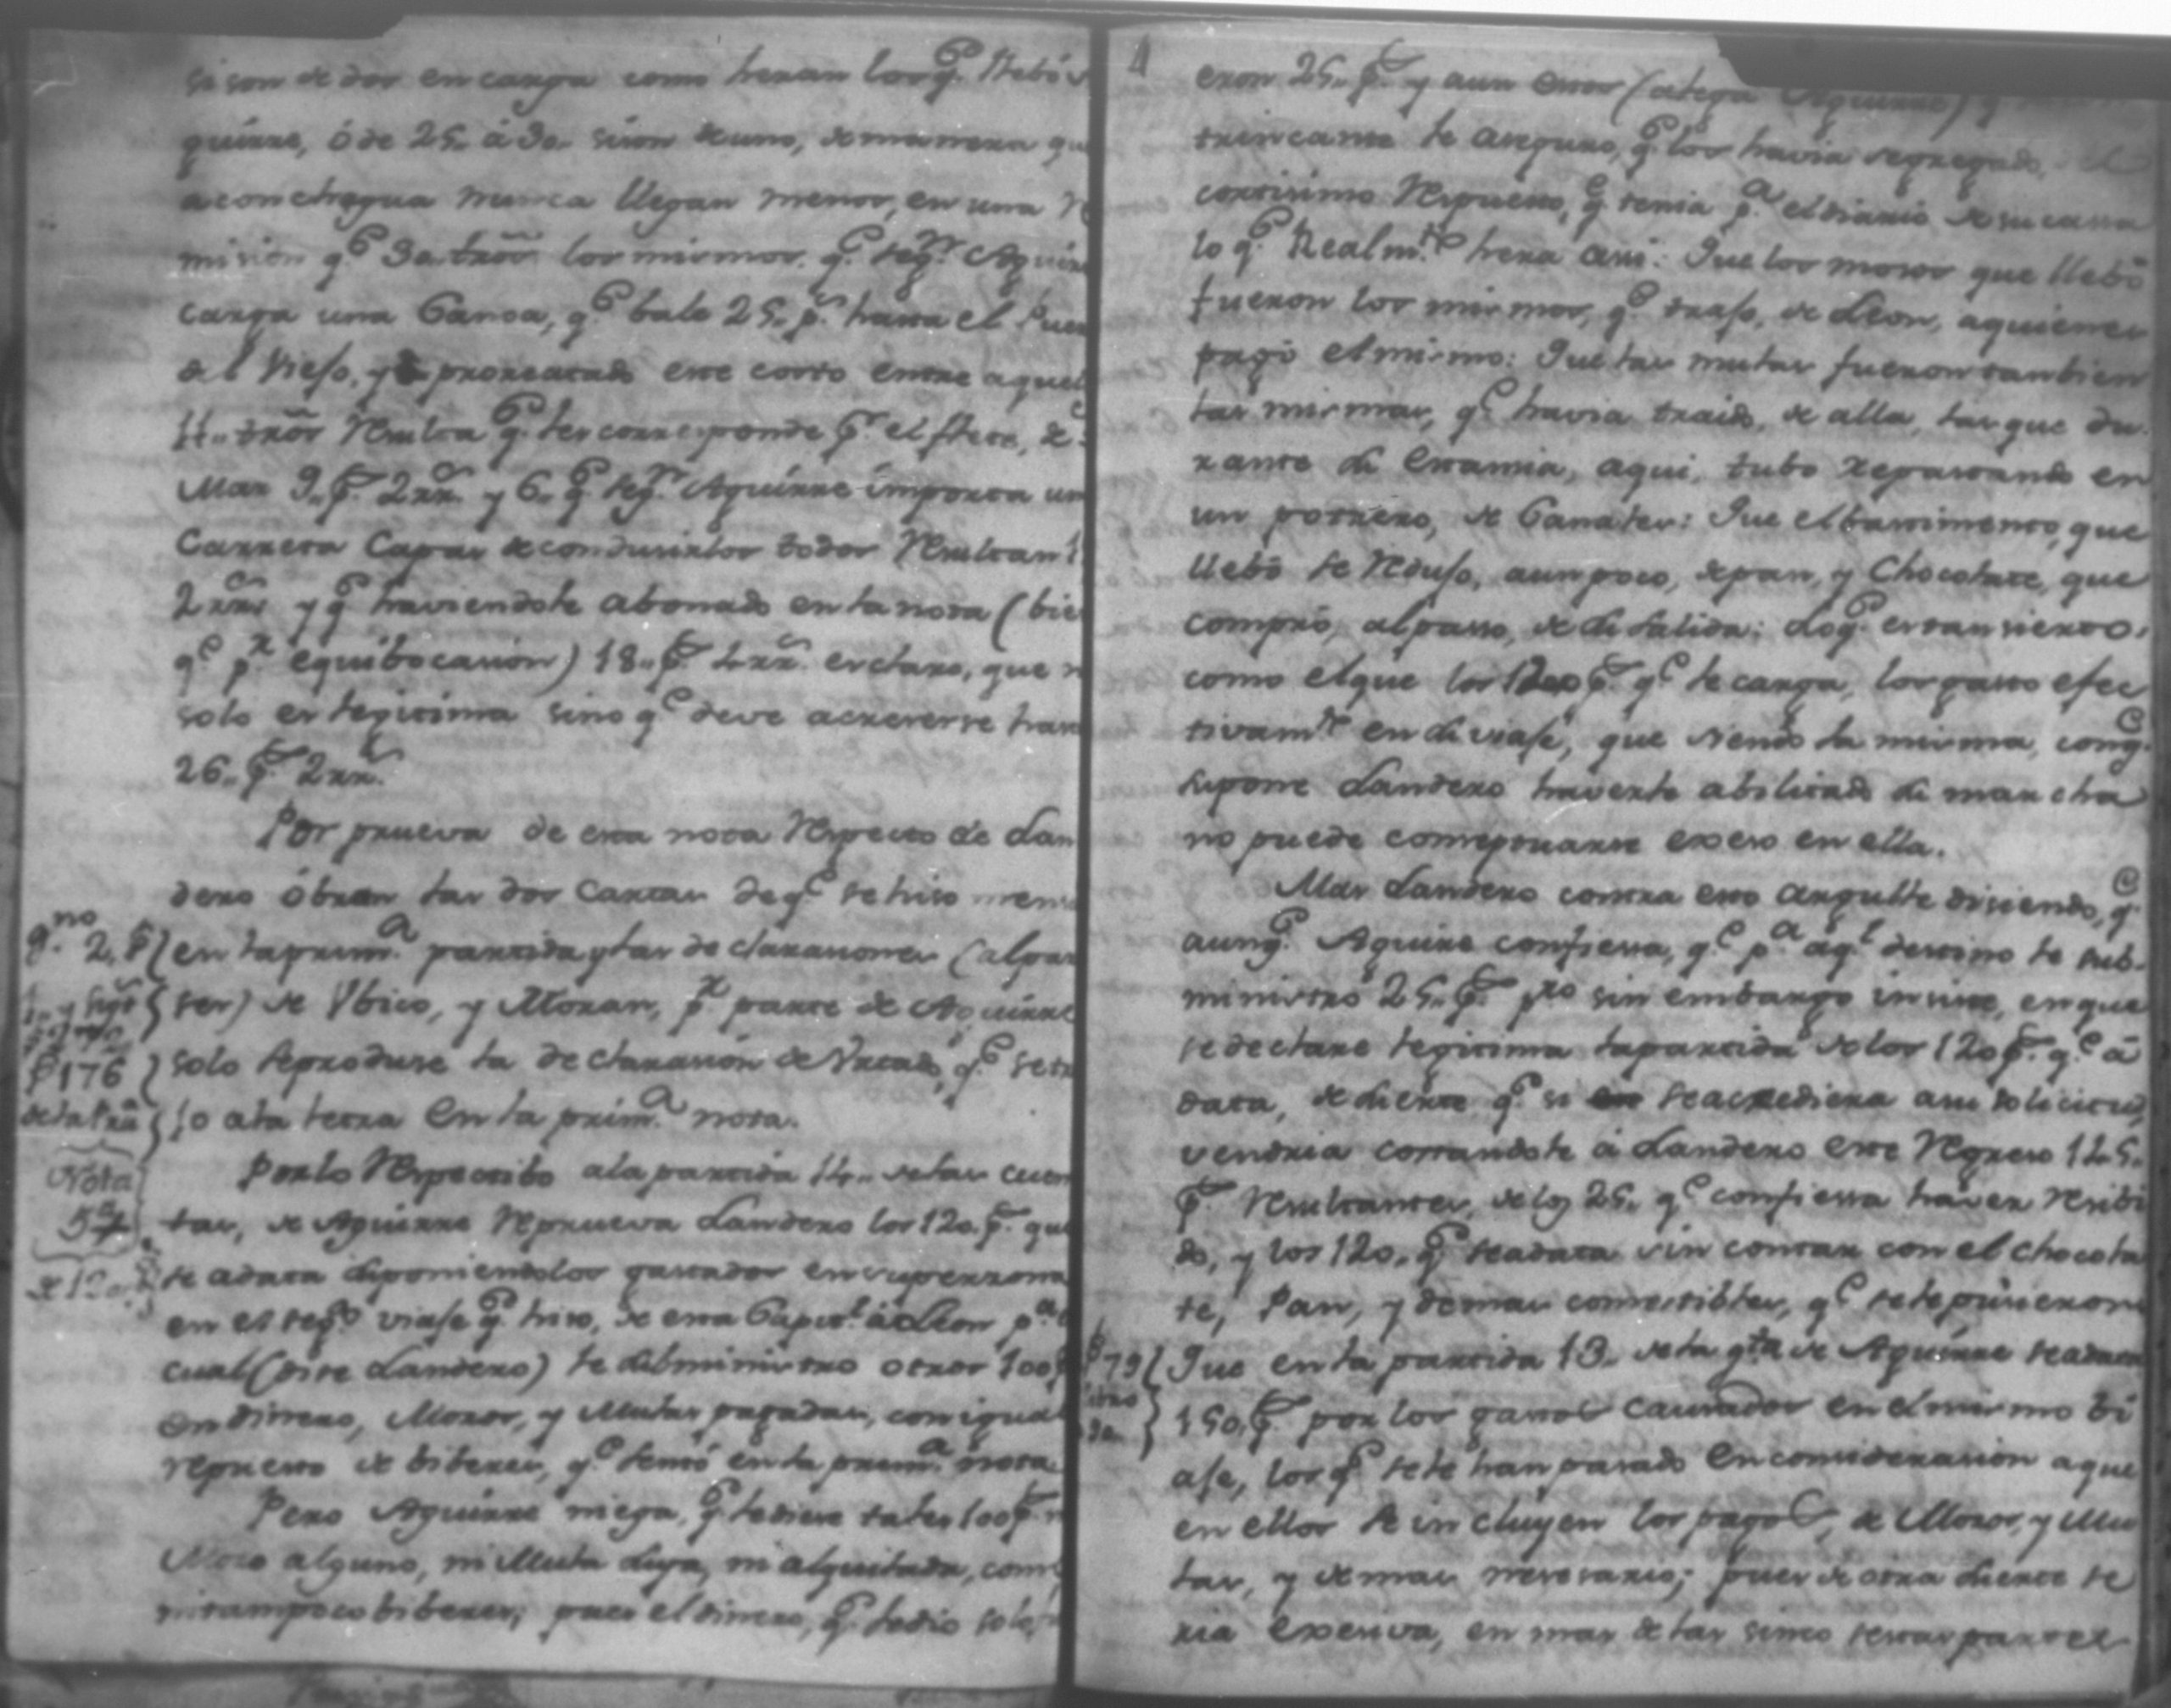 si son de dos en carga como heran los q.e llebó
quirre, ó de 25 á 30 si son de uno, de manera qu
aconchagua nunca llegan menos, en una
mision q.e 30 los mismos q.e seg.n Aguirr
carga una Canoa, q.e bale 25 p.s hasta el Puer
del Viejo, y prorrateado este costo entre aquel
tt.s Resulta q.e les corresponde p.r el flete, de
Mar 9 p.s 2 rr.s y 6 q.e seg.n Aguirre importa un
Carreta Capas de condusirlos todos Resultan
2 rr.s y q.e haviendole abonado en la nota (bie
q.e p.r equibocasion) 18 p.s 4 rr.s es claro, que n
solo es legitima sino q.e deve acreserse hast
26 p.s 2 rr.s
Por prueva de esta nota Respecto de Lan
dero óbran las dos Cartas de q.e se hiso mens
en la prim.a partida y las declarasiones (al pare
ser) de Vbico, y Moran, p.r parte de Aguirre
solo Reproduse la declarasion de q.e se
jo ala letra en la prim.a nota.
Por lo Respectibo ala partida 14 de las cuen
tas, de Aguirre Reprueva Landero los 120 p.s que
se adata suponiendolos gastados en su persona
en el seg.do viaje q.e hiso, de esta Capit.l á Leon p.a
cual (dise Landero) le subministro otros 100 p
en dinero, Mosos, y Mulas pagadas, con igual
repuesto de biberes, q.e sentó en la prim.a nota
Pero Aguirre niega, q.e le diese tales 100 p.s
Moso alguno, ni Mula suya, ni alquilada, como
ni tampoco biberes; pues el dinero, q.e le dio solo
2. p
P 176
Nota
5.a
de 120
eron 25 p.s y aun esos (alega Aguirre) q
trincante le aseguro, q.e los havia segregado, el
cortisimo Repuesto, q.e tenia p.a el diario de su casa
lo q.e Realm.te hera asi: Que los mosos que llebó
fueron los mismos, q.e trajo, de Leon, aquienes
pagó el mismo: Que las mulas fueron tambien
las mismas, q.e havia traido, de alla, las que du
rante su estansia, aqui, tubo repastando en
un potrero, de Canales: Que el bastimento, que
llebó se Redujo, aun poco, de pan, y Chocolate, que
compró, al paso, de su salida: Lo q.e es tan sierto
como el que los 120 p.s q.e se carga, los gasto efec
tivam.te en su viaje, que siendo la misma, con q.e
supone Landero haverle abilitado su marcha
no puede conseptuarse exeso en ella.
Mas Landero contra esto argulle disiendo, q.e
aunq.e Aguirre confiesa, q.e p.a aq.l destino le sub
ministró 25 p.s p.ro sin embargo insiste, en que
se declare legitima la partida de los 120 p.s q.e á
data, de suerte q.e si se acrediera asu solicitud
vendria costandole á Landero este Regreso 145
p.s Resultantes, de los 25 q.e confiesa haver Resibi
do, y los 120 q.e se adata sin contar con el chocola
te, Pan, y demas comestibles, q.e se le pusieron
Que en la partida 13 de la q.ta de Aguirre se adata
150 p.s por los gastos causados en el mismo bi
aje, los q.e se le han pasado en consideracion a que
en ellos se incluyen los pagos, de Mosos, y Mu
las, y demas nesesario; pues de otra suerte se
ria exesiva, en mas de las sinco sestas partes
P 79